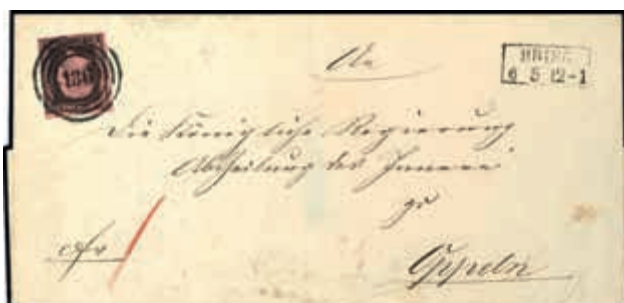 An
BRIEG
6 5 12-1
die Königliche Regierung
Abtheilung des Innern
zu
Oppeln